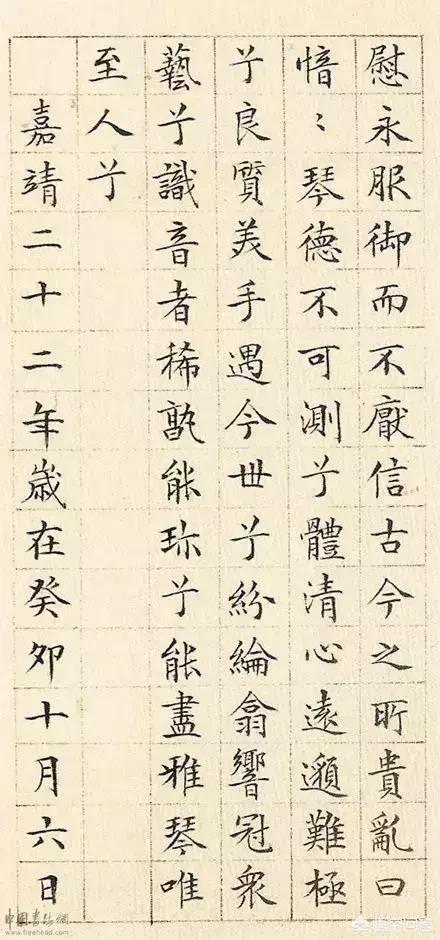 慰永服御而不厭信古今之所貴亂曰
愔〻琴德不可測兮體清心遠邈難極
兮良質美手遇今世兮紛綸翕響冠衆
藝兮識音者稀孰能珎兮能盡雅琴唯
至人兮
嘉靖二十二年歲在癸卯十月六日
中國書法網
www.freehead.com
悟空问答